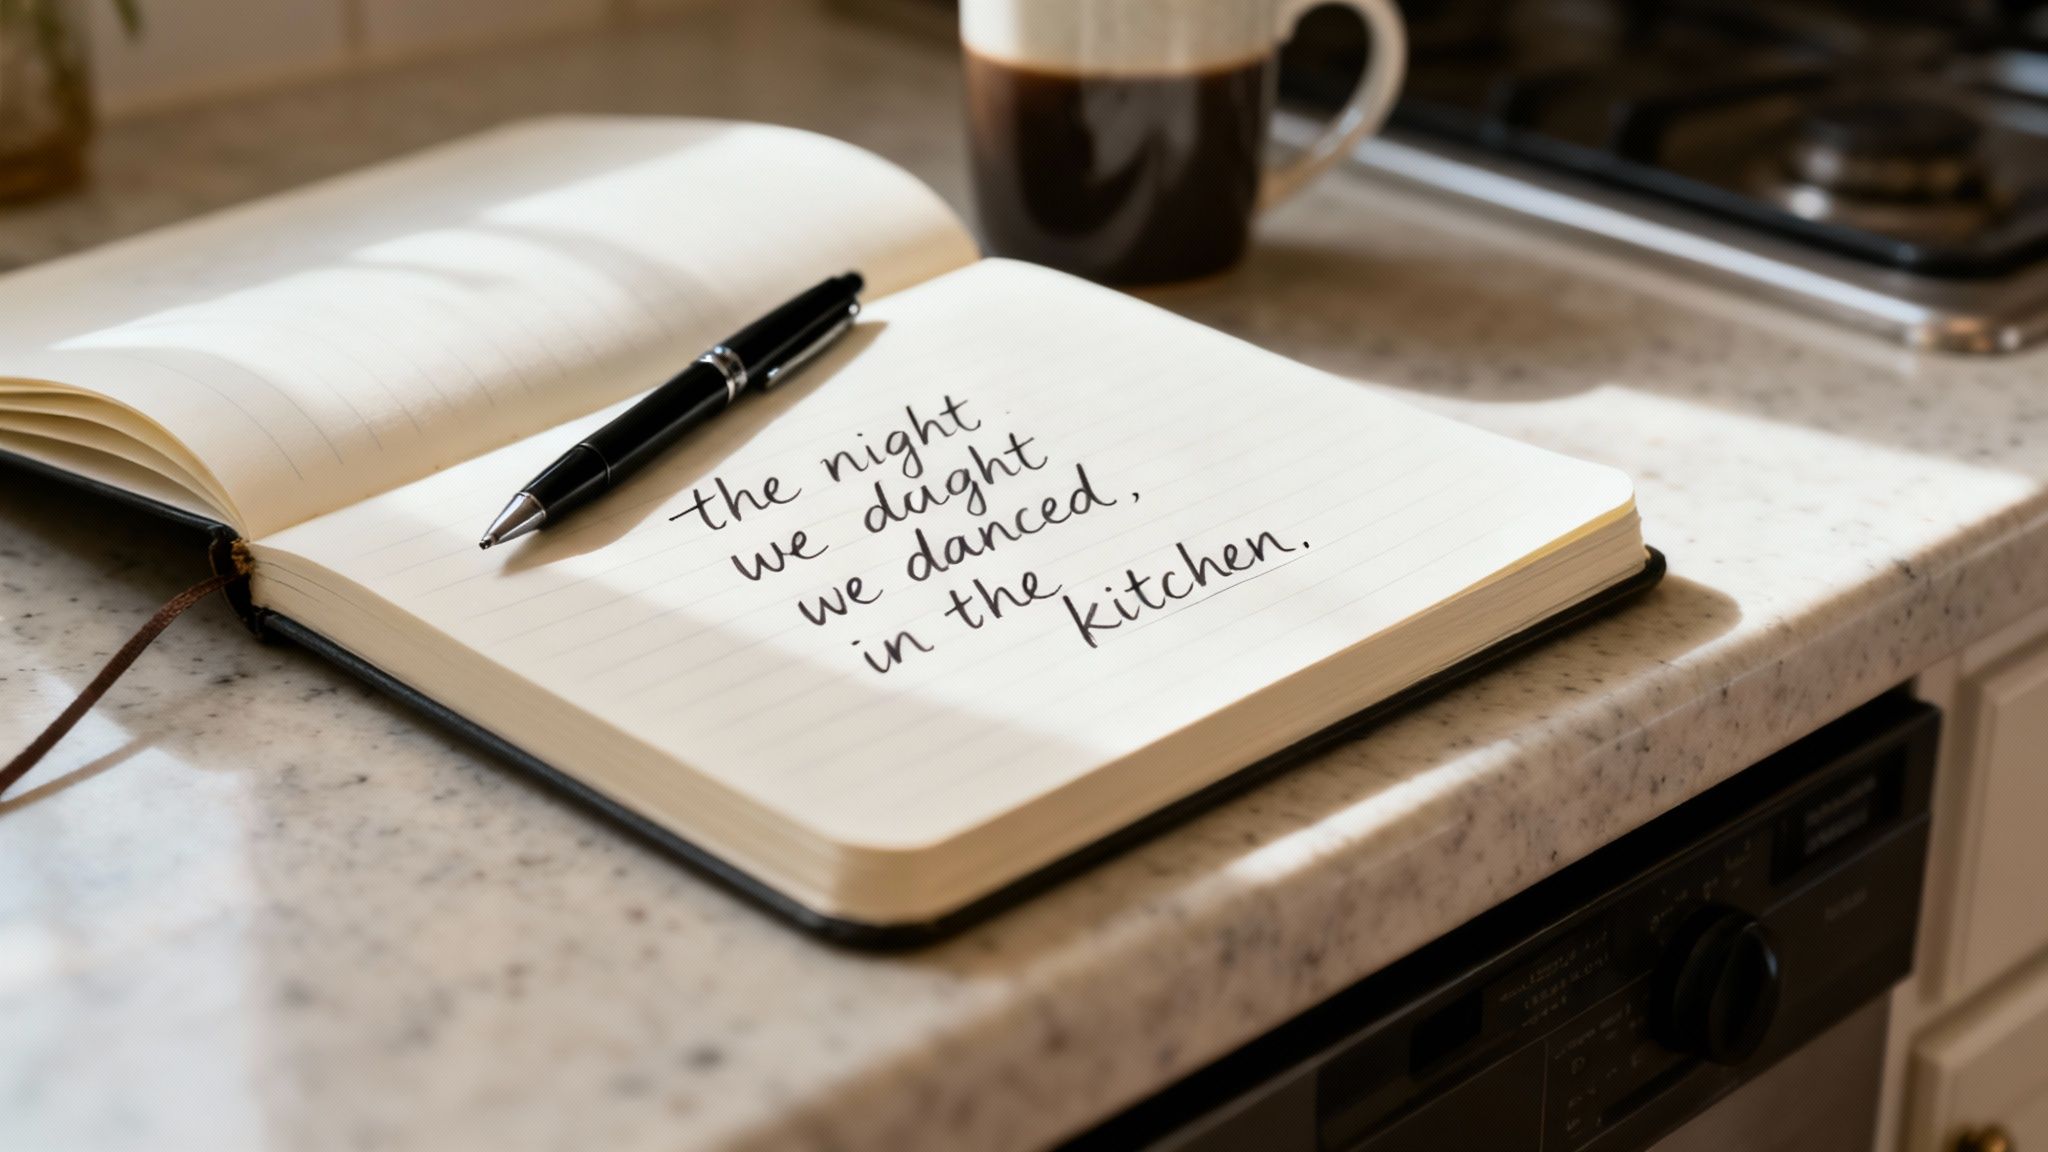 the night
we dught
we danced,
in the kitchen.